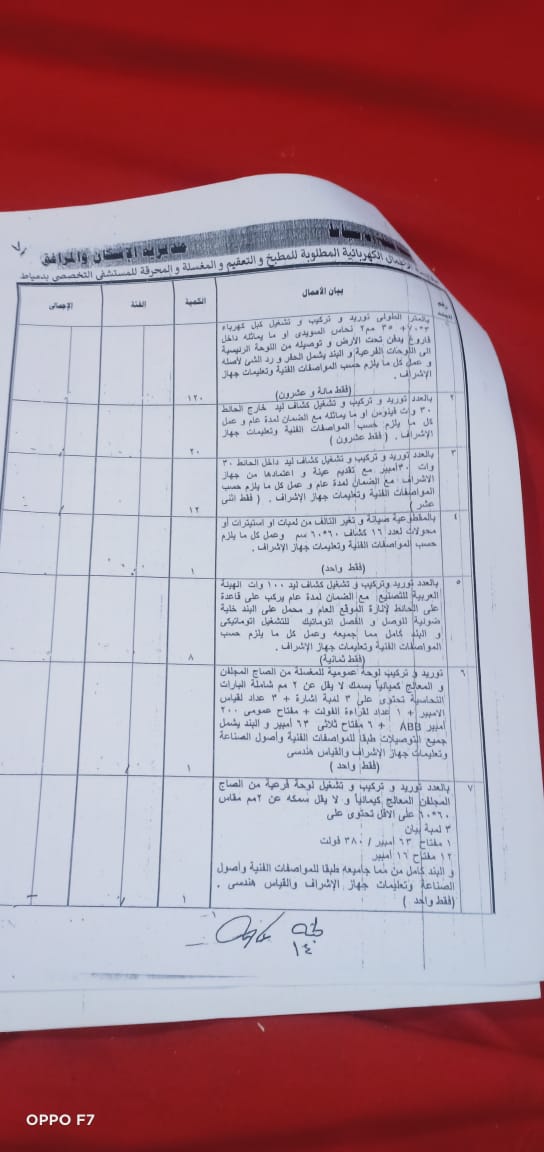 مديرية الإسكان والمرافق
الأعمال الكهربائية المطلوبة للمطبخ و التعقيم و المغسلة و المحرقة للمستشفى التخصصي بدمياط
رقم البند
بيان الأعمال
الكمية
الفئة
الإجمالى
بالمتر الطولى توريد و تركيب و تشغيل كبل كهرباء
٣*٧٠ + ٣٥ مم٢ نحاس السويدى او ما يماثله داخل
يدفن تحت الأرض و توصيله من اللوحة الرئيسية
الى اللوحات الفرعية و البند يشمل الحفر و رد الشئ لأصله
و عمل كل ما يلزم حسب المواصفات الفنية وتعليمات جهاز
الإشراف .
(فقط مائة و عشرون)
١٢٠
٢
بالعدد توريد و تركيب و تشغيل كشاف ليد خارج الحائط
٣٠ وات فينوس او ما يماثله مع الضمان لمدة عام و عمل
كل ما يلزم حسب المواصفات الفنية وتعليمات جهاز
الإشراف . ( فقط عشرون )
٢٠
٣
بالعدد توريد و تركيب و تشغيل كشاف ليد داخل الحائط ٣٠
وات ٣٠ امبير مع تقديم عينة و اعتمادها من جهاز
الاشراف مع الضمان لمدة عام و عمل كل ما يلزم حسب
المواصفات الفنية وتعليمات جهاز الإشراف . ( فقط اثنى
عشر )
١٢
٤
بالمقطوعية صيانة و تغير التالف من لمبات او استيترات أو
محولات لعدد ١٦ كشاف ٦٠*٦٠ سم وعمل كل ما يلزم
حسب المواصفات الفنية وتعليمات جهاز الإشراف .
(فقط واحد)
١
٥
بالعدد توريد وتركيب و تشغيل كشاف ليد ١٠٠ وات الهيئة
العربية للتصنيع مع الضمان لمدة عام يركب على قاعدة
على الحائط لإنارة الموقع العام و محمل على البند خلية
ضوئية للوصل و الفصل اتوماتيك للتشغيل اتوماتيكى
و البند كامل مما جميعه وعمل كل ما يلزم حسب
المواصفات الفنية وتعليمات جهاز الإشراف .
(فقط ثمانية)
٨
٦
توريد و تركيب لوحة عمومية للمغسلة من الصاج المجلفن
و المعالج كيميائياً بسمك لا يقل عن ٢ مم شاملة البارات
النحاسية تحتوى على ٣ لمبة اشارة + ٣ عداد لقياس
الامبير + ١ عداد لقراءة الفولت + مفتاح عمومى ٢٠٠
امبير ABB + ٦ مفتاح ثلاثى ٦٣ أمبير و البند يشمل
جميع التوصيلات طبقا للمواصفات الفنية وأصول الصناعة
وتعليمات جهاز الإشراف والقياس هندسى
(فقط واحد )
١
٧
بالعدد توريد و تركيب و تشغيل لوحة فرعية من الصاج
المجلفن المعالج كيمائياً و لا يقل سمكه عن ٢مم مقاس
٦٠*٦٠ على الاقل تحتوى على
٣ لمبة بيان
١ مفتاح ٦٣ أمبير / ٣٨٠ فولت
١٢ مفتاح ١٦ أمبير
و البند كامل من مما جاميعه طبقا للمواصفات الفنية وأصول
الصناعة وتعليمات جهاز الإشراف والقياس هندسى .
(فقط واحد )
١
١٤
OPPO F7